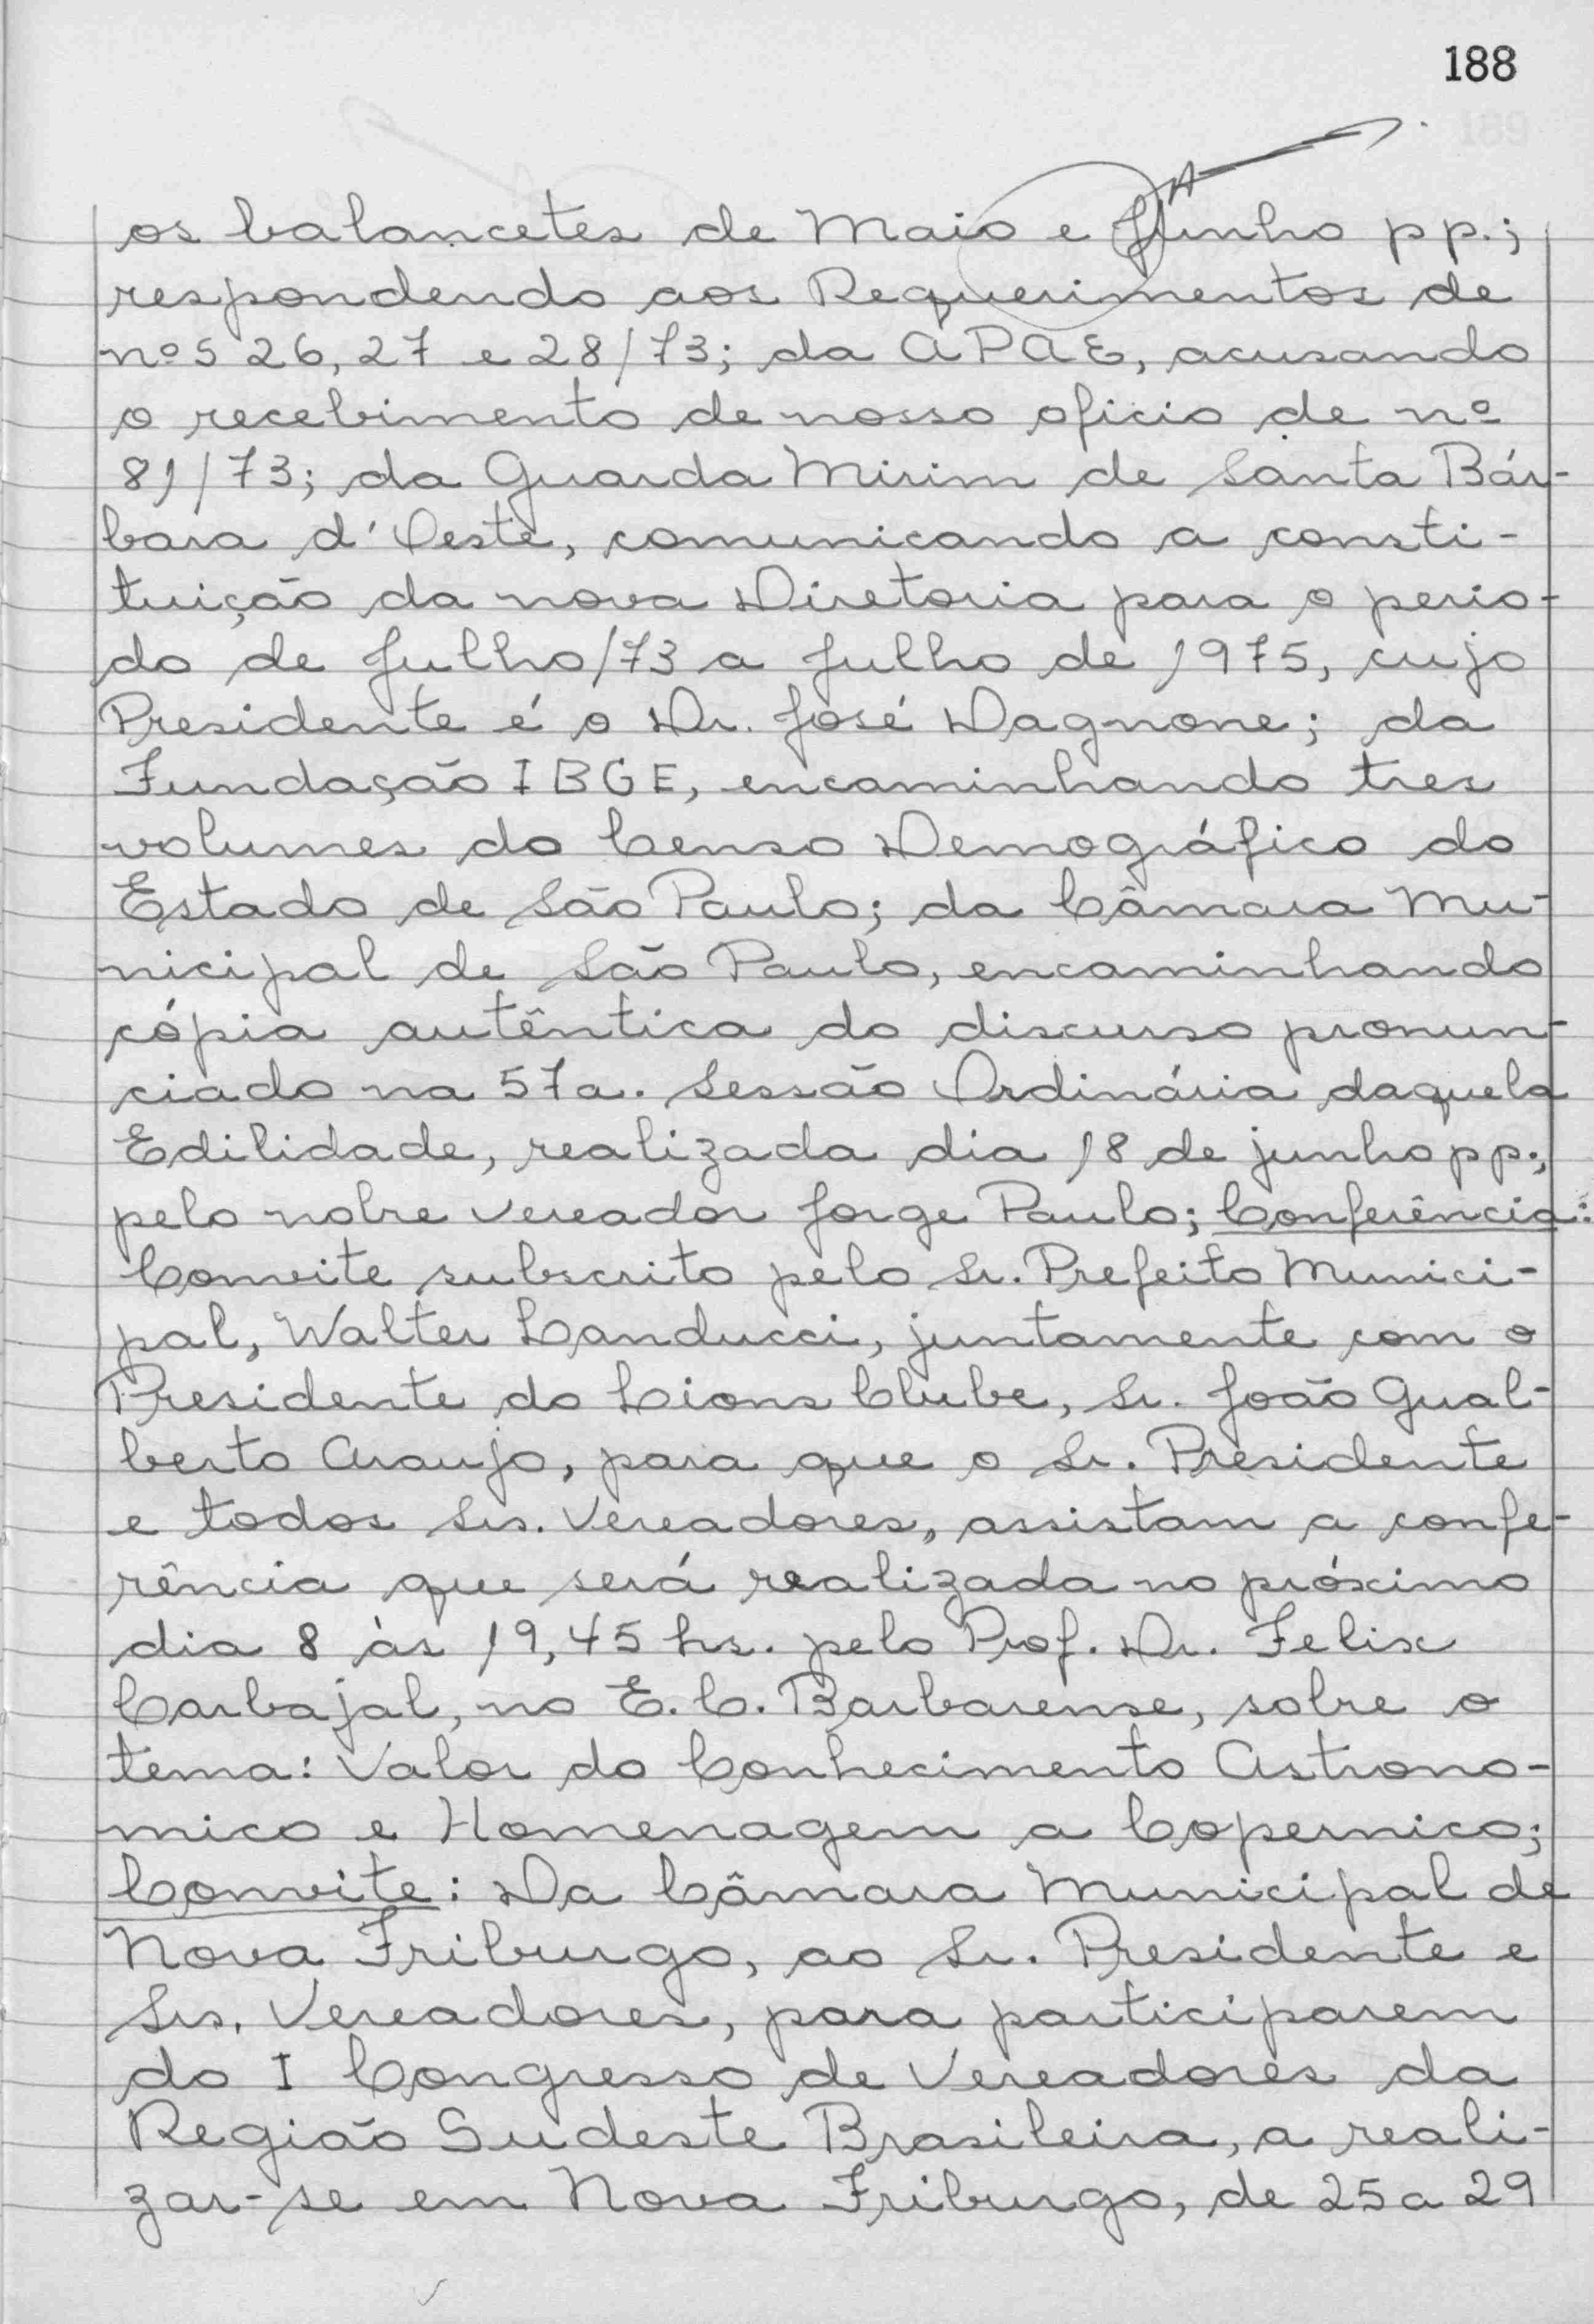 188
os balancetes de Maio e Junho pp.;
respondendo aos Requerimentos de
nºs 26, 27 e 28/73; da APAE, acusando
o recebimento de nosso oficio de nº
81/73; da Guarda Mirim de Santa Bár-
bara d'Oeste, comunicando a consti-
tuição da nova Diretoria para o perio-
do de Julho/73 a Julho de 1975, cujo
Presidente é o Dr. José Dagnone; da
Fundação IBGE, encaminhando tres
volumes do Censo Demográfico do
Estado de São Paulo; da Câmara Mu-
nicipal de São Paulo, encaminhando
cópia autêntica do discurso pronun-
ciado na 57a. Sessão Ordinária daquela
Edilidade, realizada dia 18 de junho pp.,
pelo nobre vereador Jorge Paulo; Conferência:
Convite subscrito pelo Sr. Prefeito Munici-
pal, Walter Landucci, juntamente com o
Presidente do Lions Clube, Sr. João Gual-
berto Araujo, para que o Sr. Presidente
e todos Srs. Vereadores, assistam a confe-
rência que será realizada no próximo
dia 8 às 19,45 hs. pelo Prof. Dr. Felix
Carbajal, no E.C. Barbarense, sobre o
tema: Valor do Conhecimento Astrono-
mico e Homenagem a Copernico;
Convite: Da Câmara Municipal de
Nova Friburgo, ao Sr. Presidente e
Srs. Vereadores, para participarem
do I Congresso de Vereadores da
Região Sudeste Brasileira, a reali-
zar-se em Nova Friburgo, de 25 a 29